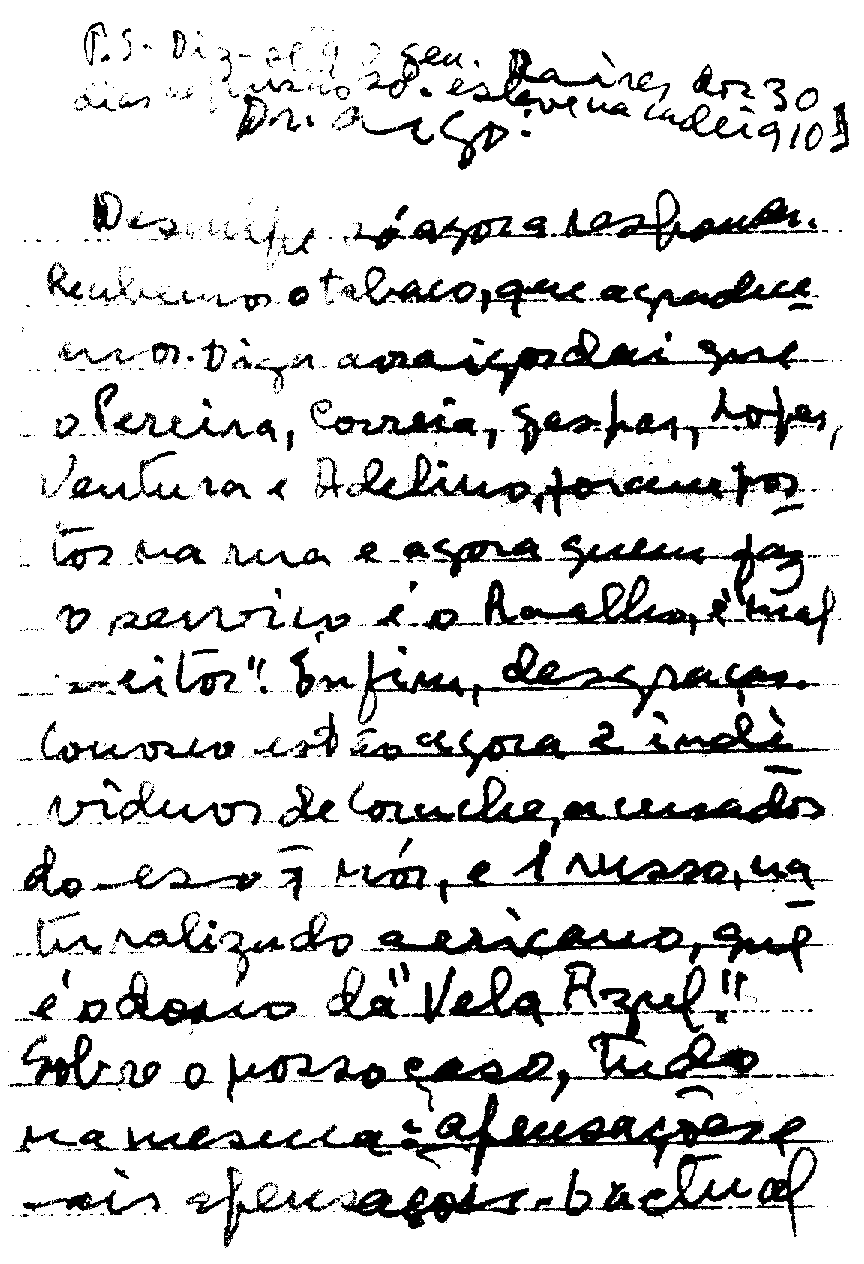 P.S. Diz-se q o gen. Raires dos 30
dias de prisão só esteve na cadeia 10!
Dr. Amigo:
Desculpe só agora responder.
Recebemos o tabaco, que agradece
mos. Diga aos amigos daí que
o Pereira, Correia, Gaspar, Lopes,
Ventura e Adelino, foram pos
tos na rua e agora quem faz
o serviço é o Ramalho, e "mal
feitos". Enfim, desgraças.
Conosco estão agora 2 indi
viduos de Coruche, acusados
do eso 7 mór, e 1 russo, na
turalizado americano, que
é o dono da "Vela Azul".
Sobre o nosso caso, tudo
na mesma: apensações e
mais apensações. O actual